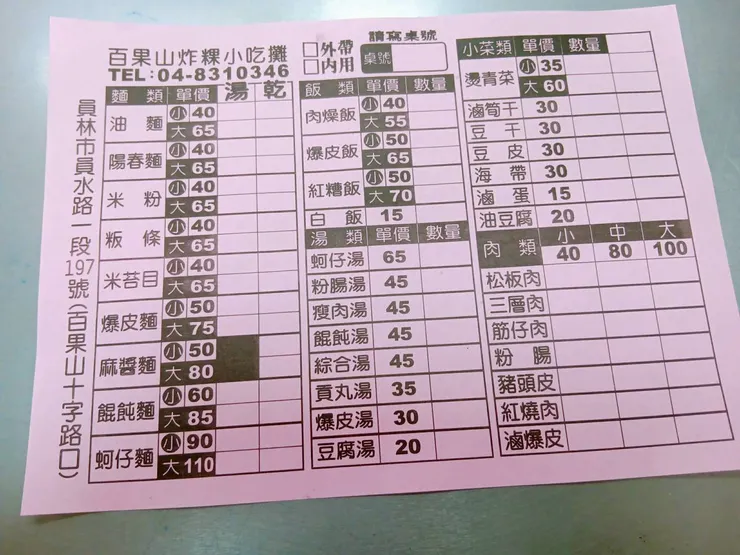 百果山炸粿小吃攤
TEL:04-8310346
員林市員水路一段197號(百果山十字路口)
請寫桌號
□外帶
□內用
桌號
麵類 單價 湯 乾
油麵 小 40
大 65
陽春麵 小 40
大 65
米粉 小 40
大 65
粄條 小 40
大 65
米苔目 小 40
大 65
爆皮麵 小 50
大 75
麻醬麵 小 50
大 80
餛飩麵 小 60
大 85
蚵仔麵 小 90
大 110
飯類 單價 數量
肉燥飯 小 40
大 55
爆皮飯 小 50
大 65
紅糟飯 小 50
大 70
白飯 15
湯類 單價 數量
蚵仔湯 65
粉腸湯 45
瘦肉湯 45
餛飩湯 45
綜合湯 45
貢丸湯 35
爆皮湯 30
豆腐湯 20
小菜類 單價 數量
燙青菜 小 35
大 60
滷筍干 30
豆干 30
豆皮 30
海帶 30
滷蛋 15
油豆腐 20
肉類 小 40 中 80 大 100
松板肉
三層肉
筋仔肉
粉腸
豬頭皮
紅燒肉
滷爆皮